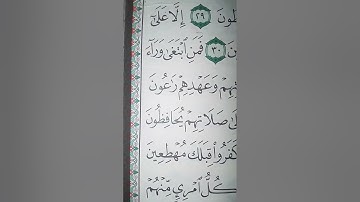 ظُونَ ٢٩ إِلَّا عَلَىٰٓ
نَ ٣٠ فَمَنِ ٱبْتَغَىٰ وَرَآءَ
تِهِمْ وَعَهْدِهِمْ رَٰعُونَ
لَىٰ صَلَاتِهِمْ يُحَافِظُونَ
كَفَرُوا۟ قِبَلَكَ مُهْطِعِينَ
كُلُّ ٱمْرِئٍ مِّنْهُمْ